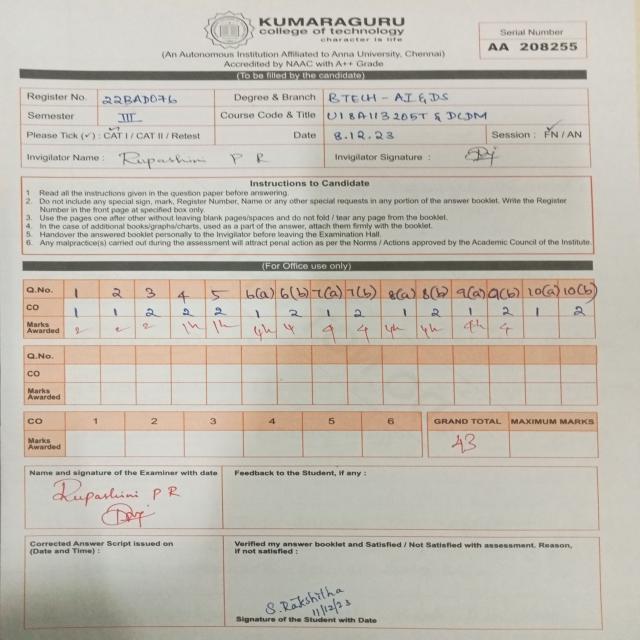 KUMARAGURU
college of technology
character is life
Serial Number
AA 208255
(An Autonomous Institution Affiliated to Anna University, Chennai)
Accredited by NAAC with A++ Grade
(To be filled by the candidate)
Register No. 22BAD076 Degree & Branch BTECH - AI & DS
Semester III Course Code & Title U18AI13205T & DCDM
Please Tick (✓) : CAT I / CAT II / Retest Date 8.12.23 Session : FN / AN
Invigilator Name : Rupashini P R Invigilator Signature :
Instructions to Candidate
1 Read all the instructions given in the question paper before answering.
2. Do not include any special sign, mark, Register Number, Name or any other special requests in any portion of the answer booklet. Write the Register
Number in the front page at specified box only.
3. Use the pages one after other without leaving blank pages/spaces and do not fold / tear any page from the booklet.
4. In the case of additional books/graphs/charts, used as a part of the answer, attach them firmly with the booklet.
5. Handover the answered booklet personally to the Invigilator before leaving the Examination Hall.
6. Any malpractice(s) carried out during the assessment will attract penal action as per the Norms / Actions approved by the Academic Council of the Institute.
(For Office use only)
Q.No. 1 2 3 4 5 6(a) 6(b) 7(a) 7(b) 8(a) 8(b) 9(a) 9(b) 10(a) 10(b)
CO 1 1 2 2 2 1 2 1 2 1 2 1 2 1 2
Marks Awarded 2 2 2 1½ 1½ 4½ 4 4 4 4½ 4½ 4½ 4
Q.No.
CO
Marks Awarded
CO 1 2 3 4 5 6 GRAND TOTAL MAXIMUM MARKS
Marks Awarded 43
Name and signature of the Examiner with date Feedback to the Student, if any :
Rupashini P R
Corrected Answer Script issued on
(Date and Time) :
Verified my answer booklet and Satisfied / Not Satisfied with assessment. Reason,
If not satisfied :
S. Rakshitha
11/12/23
Signature of the Student with Date